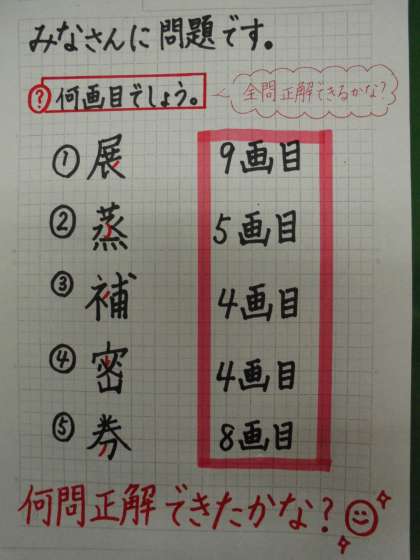 みなさんに問題です。
? 何画目でしょう。
全問正解できるかな?
① 展 9画目
② 蒸 5画目
③ 補 4画目
④ 密 4画目
⑤ 券 8画目
何問正解できたかな?